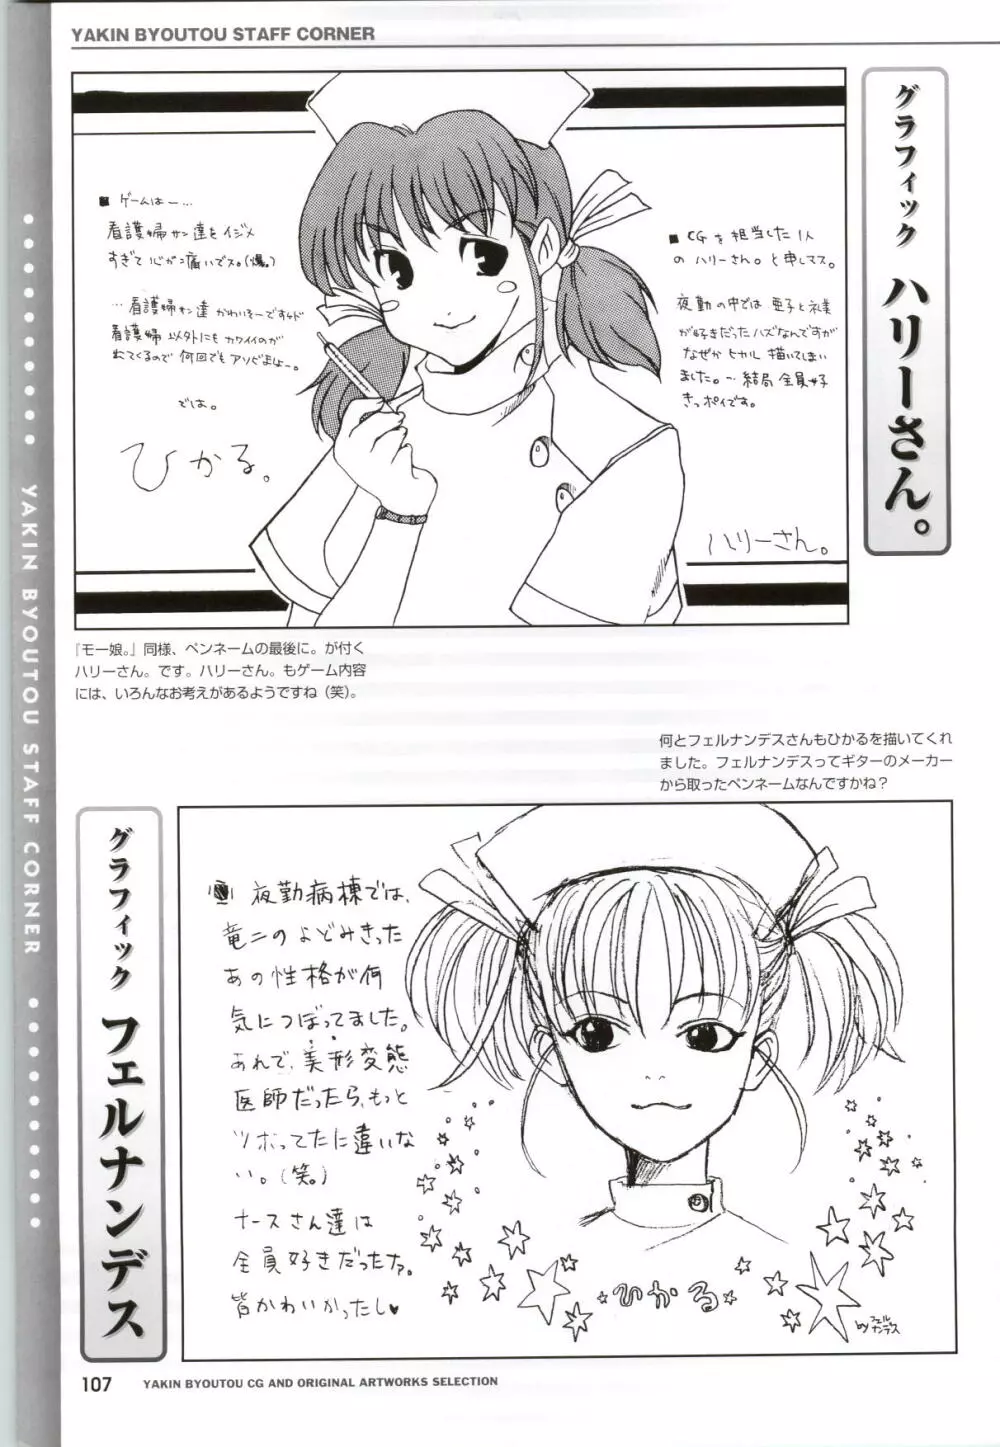 YAKIN BYOUTOU STAFF CORNER
グラフィック ハリーさん。
■ CGを担当した1人
の ハリーさん。と申しマス。
夜勤の中では 亜子と礼美
が好きだったハズなんですが
なぜか ヒカル 描いてしまい
ました。… 結局 全員好
きっポイです。
ハリーさん。
■ ゲームはー…
看護婦サン達をイジメ
すぎて 心が痛いでス。(爆。)
…看護婦サン達 かわいそーですケド
看護婦 以外にも カワイイのが
出てくるので 何回でも アソビましょー。
では。
ひかる。
『モー娘。』同様、ペンネームの最後に。が付く
ハリーさん。です。ハリーさん。もゲーム内容
には、いろんなお考えがあるようですね（笑）。
何とフェルナンデスさんもひかるを描いてくれ
ました。フェルナンデスってギターのメーカー
から取ったペンネームなんですかね？
グラフィック フェルナンデス
夜勤病棟では、
竜二のよどみきった
あの性格が何
気につぼってました。
あれで、美形変態
医師だったら、もっと
ツボってたに違いな
い。(笑。)
ナースさん達は
全員好きだったなァ。
皆かわいかったし♥
ひかる
by フェル
ナンデス
YAKIN BYOUTOU STAFF CORNER
107
YAKIN BYOUTOU CG AND ORIGINAL ARTWORKS SELECTION